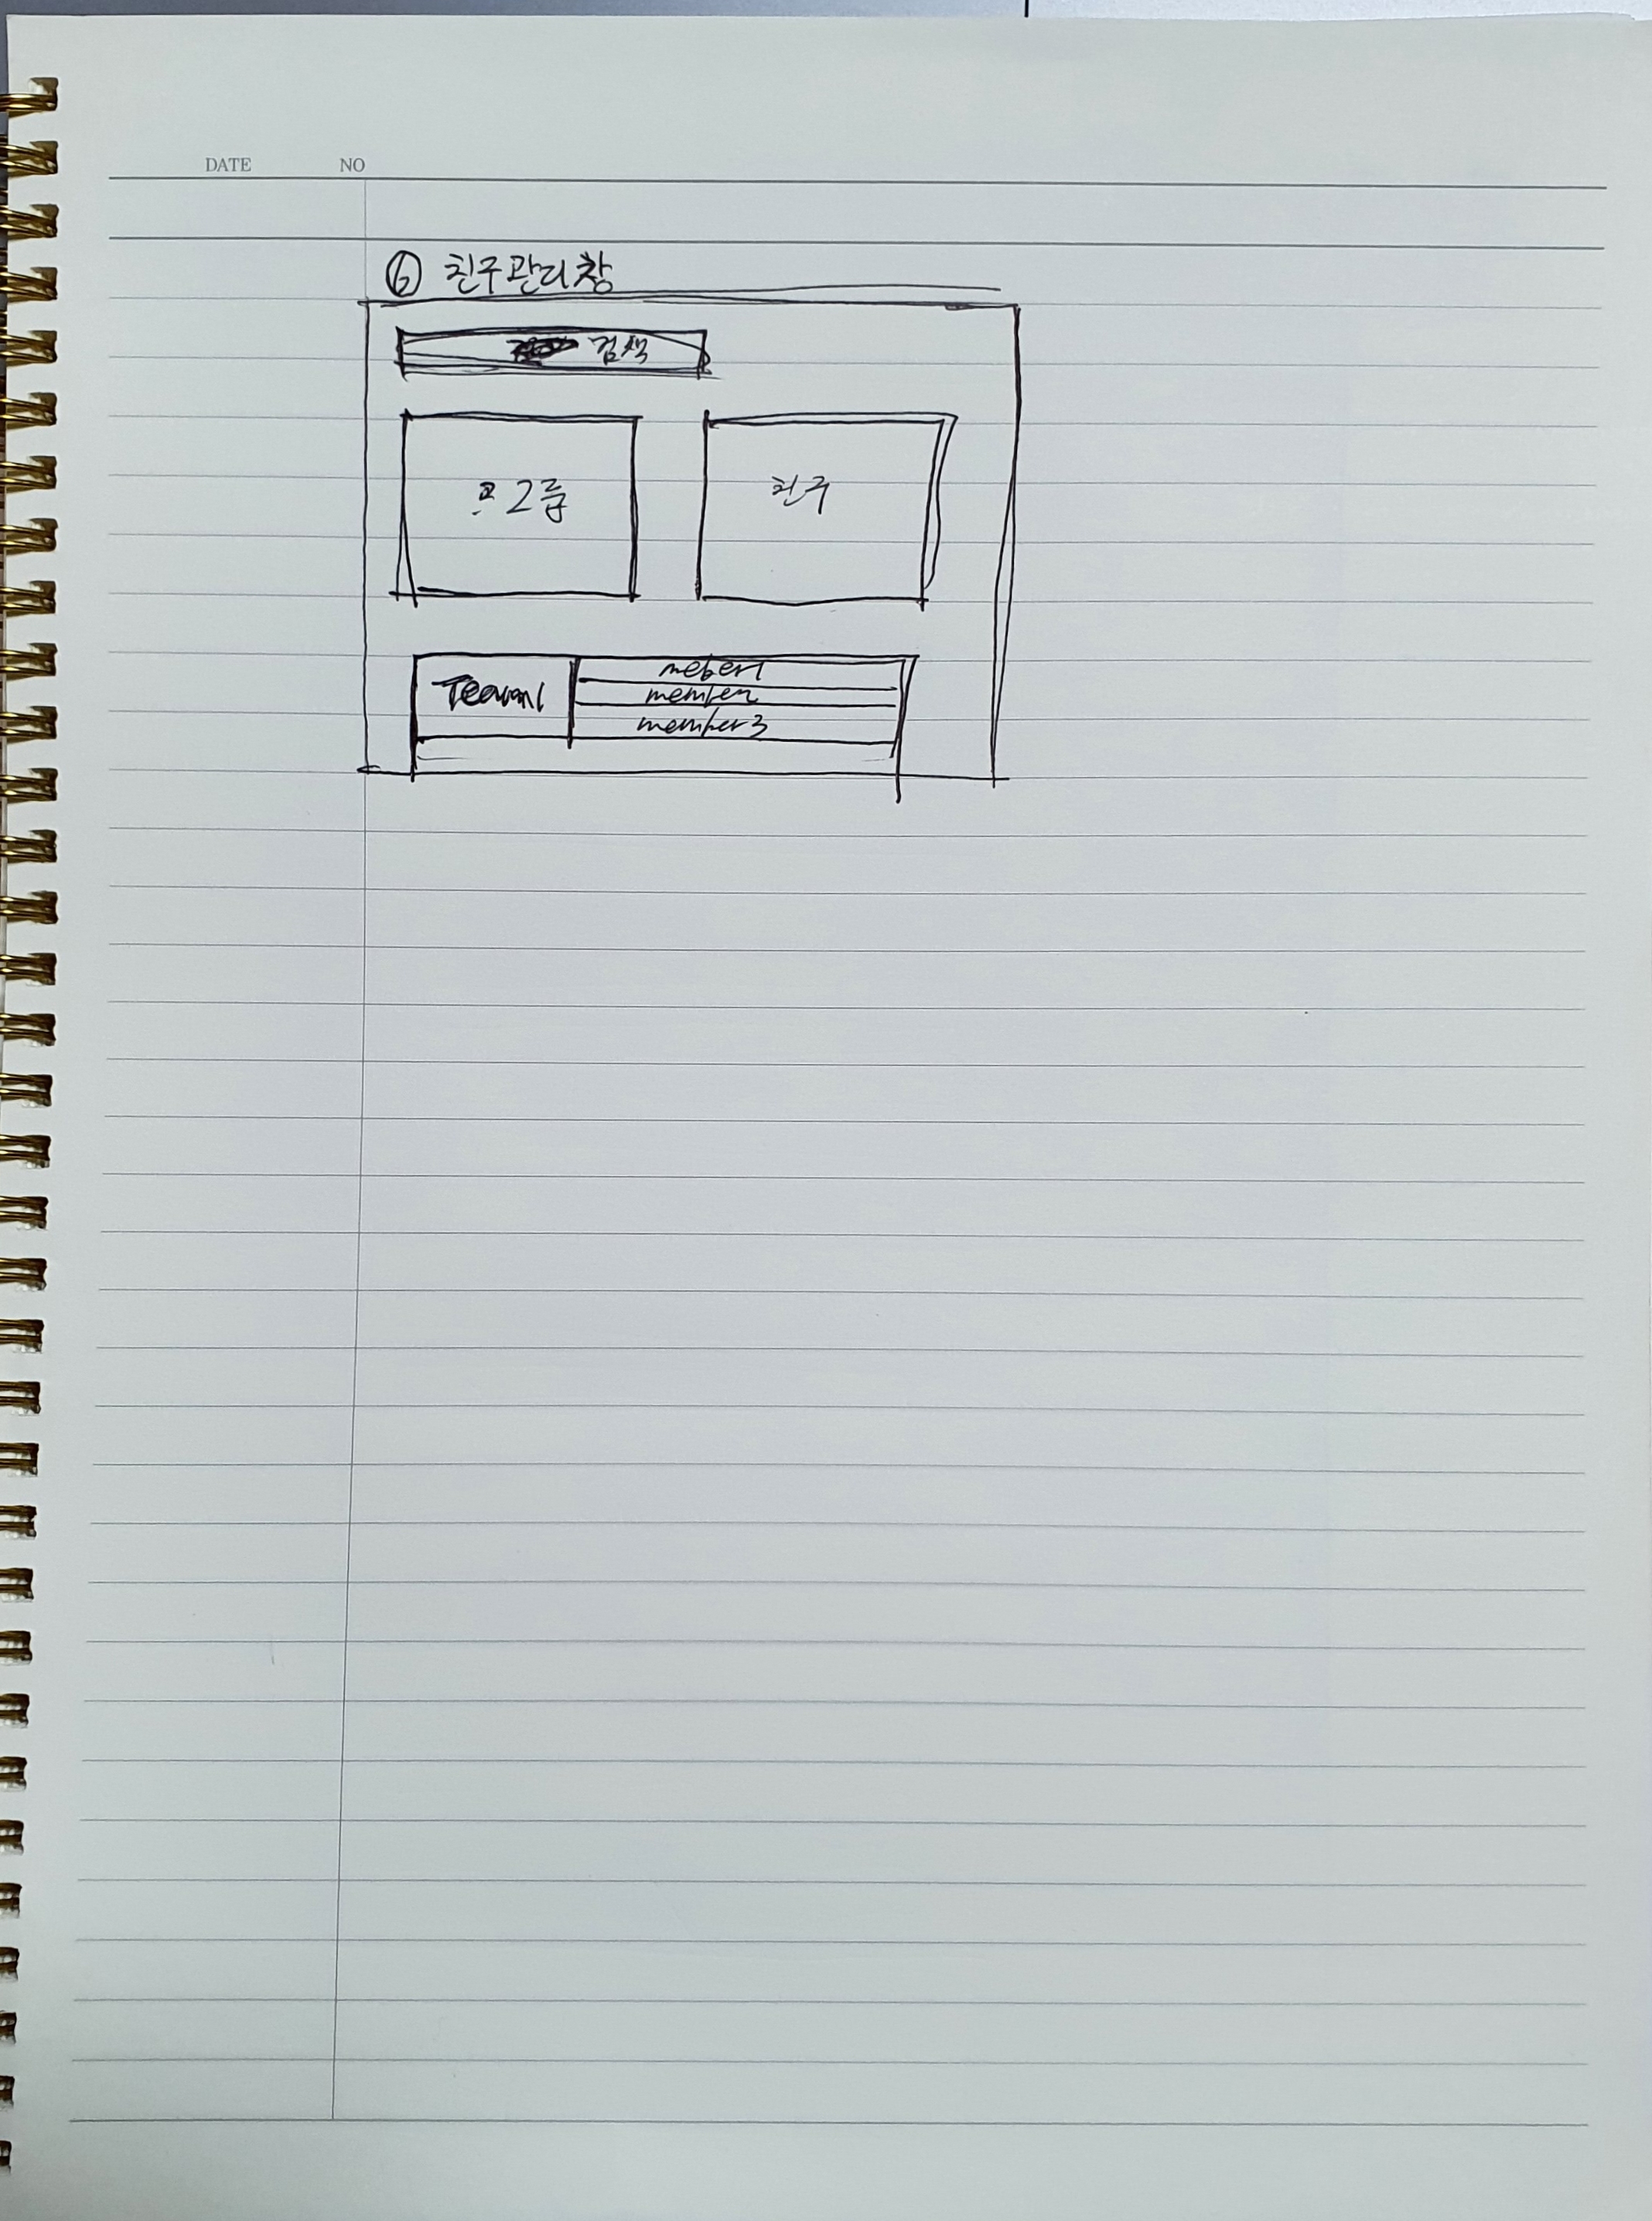 DATE NO
⑥ 친구관리창
검색
그룹
친구
Team1
meber1
member2
member3